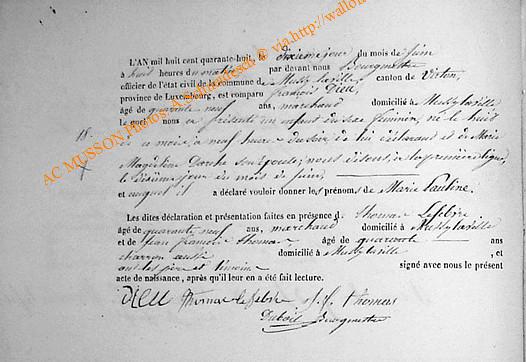 L'AN mil huit cent quarante-huit, le dixième jour du mois de juin
à huit heures du matin par devant nous Bourgmestre
officier de l'état civil de la commune de Mussy-la-ville, canton de Virton,
province de Luxembourg, est comparu françois Dieu,
âgé de quarante neuf ans, marchand domicilié à Mussy-la-ville
Le quel nous a présenté un enfant du sexe féminin, né le huit
18.
de ce mois, à neuf heures du soir de lui déclarant et de Marie
son épouse; nous disons, à la première ligne,
le dixième jour du mois de juin,
et auquel il a déclaré vouloir donner les prénoms de Marie Pauline.
Les dites déclaration et présentation faites en présence de Thomas Lefèbre
âgé de quarante neuf ans, marchand domicilié à Mussy-la-ville
et de jean françois thomas âgé de quarante ans
charron aussi domicilié à Mussy-la-ville , et
ont les père et témoins signé avec nous le présent
acte de naissance, après qu'il leur en a été fait lecture.
Dieu Thomas Lefebre j.f. thomas
Bourgmestre
AC MUSSON Photos
via.http://wallon